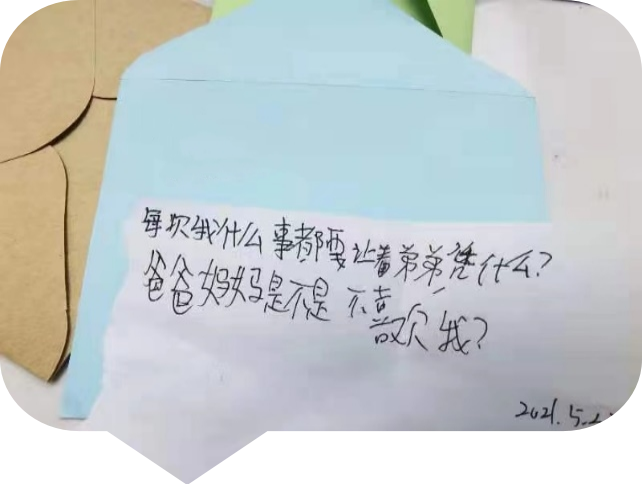 每次我什么事都要让着弟弟凭什么?
爸爸妈妈是不是不喜欢我?
2021.5.2